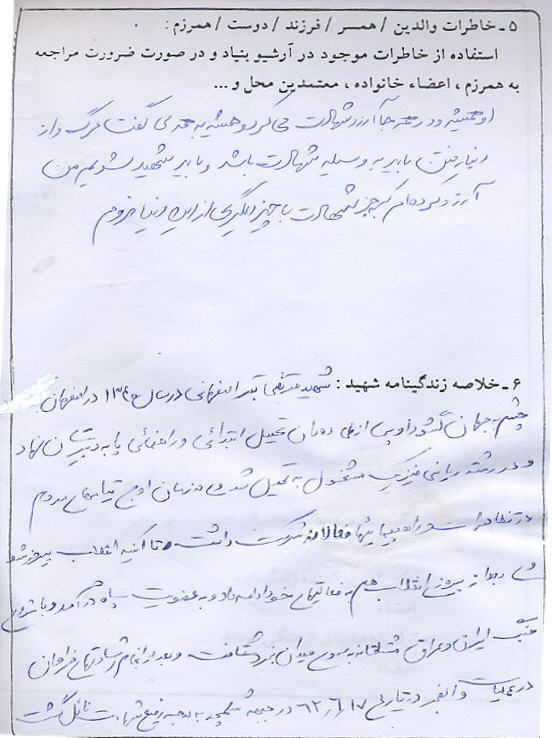 ۵ ـ خاطرات والدین / همسر / فرزند / دوست / همرزم :
استفاده از خاطرات موجود در آرشیو بنیاد و در صورت ضرورت مراجعه
به همرزم ، اعضاء خانواده ، معتمدین محل و ...
او همیشه و در همه جا آرزو شهادت می کرد و همیشه به گفت مرگ و از
دنیا رفتن باید به وسیله شهادت باشد و باید شهید شویم من
آرزو کرده ام که جز شهادت با چیز دیگری از این دنیا نروم
۶ ـ خلاصه زندگینامه شهید : شهید اصفهانی در سال ۱۳۴۰ در اصفهان
چشم به جهان گشود و پس از طی دوران تحصیل ابتدائی و راهنمائی پا به دبیرستان نهاد
و در رشته ریاضی فیزیک مشغول به تحصیل شد وی در زمان اوج مردم
در تظاهرات و راه پیمائیها فعالانه شرکت داشت تا آنکه انقلاب پیروز شد
وی بعد از پیروزی انقلاب هم به فعالیتهای خود ادامه داد و به عضویت سپاه در آمد و با شروع
جنگ ایران و عراق به سوی میدان نبرد شتافت و بعد از انجام فراوان
در عملیات والفجر در تاریخ ۶۲/۶/۱۷ در جبهه به درجه رفیع شهادت نائل گشت